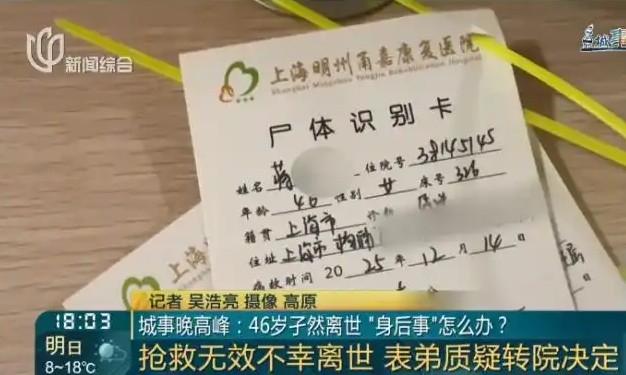 新闻综合
上海明州甬嘉康复医院
Shanghai Mingzhou Yongjia Rehabilitation Hospital
尸体识别卡
姓名 蒋 住院号 38145145
年龄 46 性别 女 床号 326
籍贯 上海市
住址 上海市
病故时间 2025年12月14日
记者 吴浩亮 摄像 高原
18:03 城事晚高峰：46岁孑然离世 "身后事"怎么办？
明日
8~18℃
抢救无效不幸离世 表弟质疑转院决定